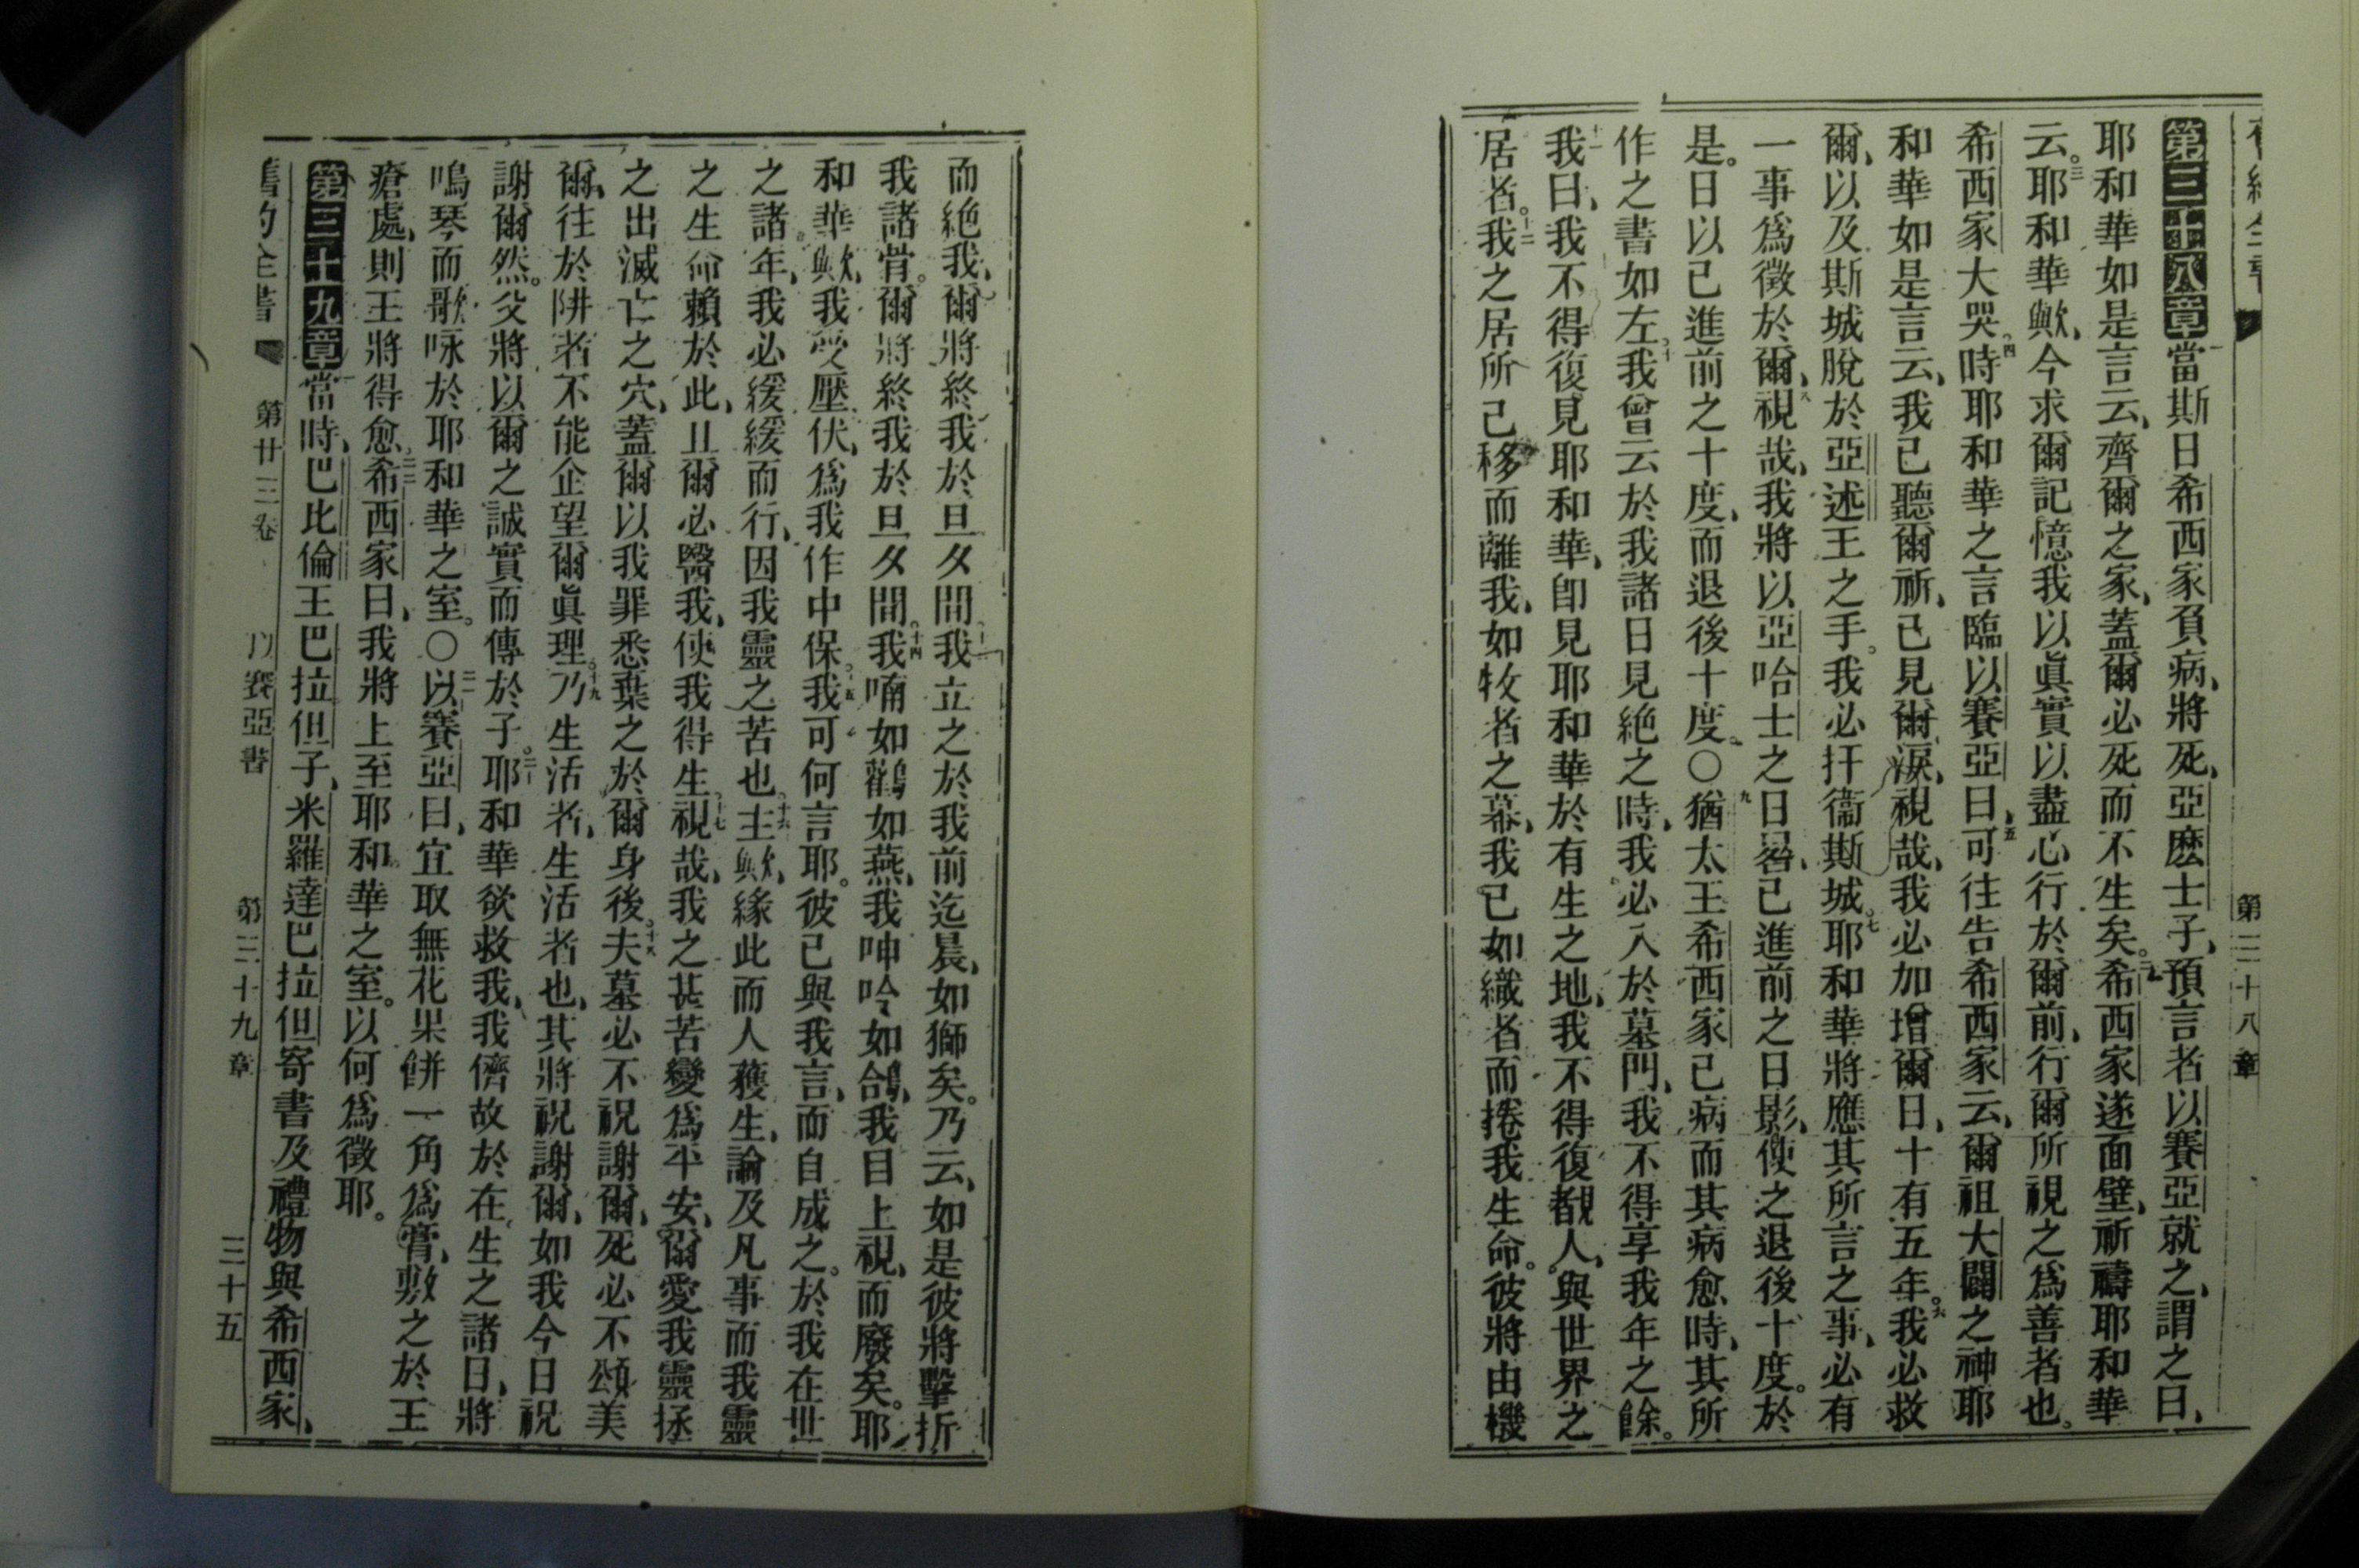 第三十八章
第三十八章當斯日希西家負病、將死、亞麽士子、預言者以賽亞就之、謂之曰、
耶和華如是言云、齊爾之家、蓋爾必死而不生矣。二希西家遂面壁、祈禱耶和華
云。三耶和華歟、今求爾記憶我以眞實以盡心行於爾前、行爾所視之爲善者也。
希西家大哭。四時耶和華之言臨以賽亞曰、五可往告希西家云、爾祖大闢之神耶
和華如是言云、我已聽爾祈、已見爾淚、視哉、我必加增爾日、十有五年。六我必救
爾、以及斯城脫於亞述王之手。我必扞衞斯城。七耶和華將應其所言之事、必有
一事爲徵於爾、八視哉、我將以亞哈士之日晷、已進前之日影、使之退後十度。於
是。日以已進前之十度、而退後十度。〇九猶太王希西家已病而其病愈時、其所
作之書如左。十我曾云於我諸日見絶之時、我必入於墓門、我不得享我年之餘。
十一我曰、我不得復見耶和華、卽見耶和華於有生之地、我不得復覩人、與世界之
居者。十二我之居所已移而離我、如牧者之幕、我已如織者而捲我生命。彼將由機
而絶我、爾將終我於旦夕間。十三我立之於我前迄晨、如獅矣。乃云、如是彼將擊折
我諸骨。爾將終我於旦夕間。十四我喃如鸛如燕、我呻吟如鴿、我目上視、而廢矣。耶
和華歟、我受壓伏、爲我作中保。十五我可何言耶。彼已與我言、而自成之。於我在世
之諸年、我必緩緩而行、因我靈之苦也。十六主歟、緣此而人穫生、論及凡事而我靈
之生命賴於此、且爾必醫我、使我得生。十七視哉、我之甚苦變爲平安、爾愛我靈拯
之出滅亡之穴、蓋爾以我罪悉棄之於爾身後。十八夫墓必不祝謝爾、死必不頌美
爾、往於阱者不能企望爾眞理。十九乃生活者、生活者也、其將祝謝爾、如我今日祝
謝爾然。父將以爾之誠實而傳於子。二十耶和華欲救我、我儕故於在生之諸日、將
鳴琴而歌咏於耶和華之室。〇二一以賽亞曰、宜取無花果餅一角爲膏、敷之於王
瘡處、則王將得愈。二二希西家曰、我將上至耶和華之室。以何爲徵耶。
第三十九章當時、巴比倫王巴拉但子、米羅達巴拉但寄書及禮物與希西家、
舊約全書 第廿三卷 以賽亞書 第三十九章 三十五